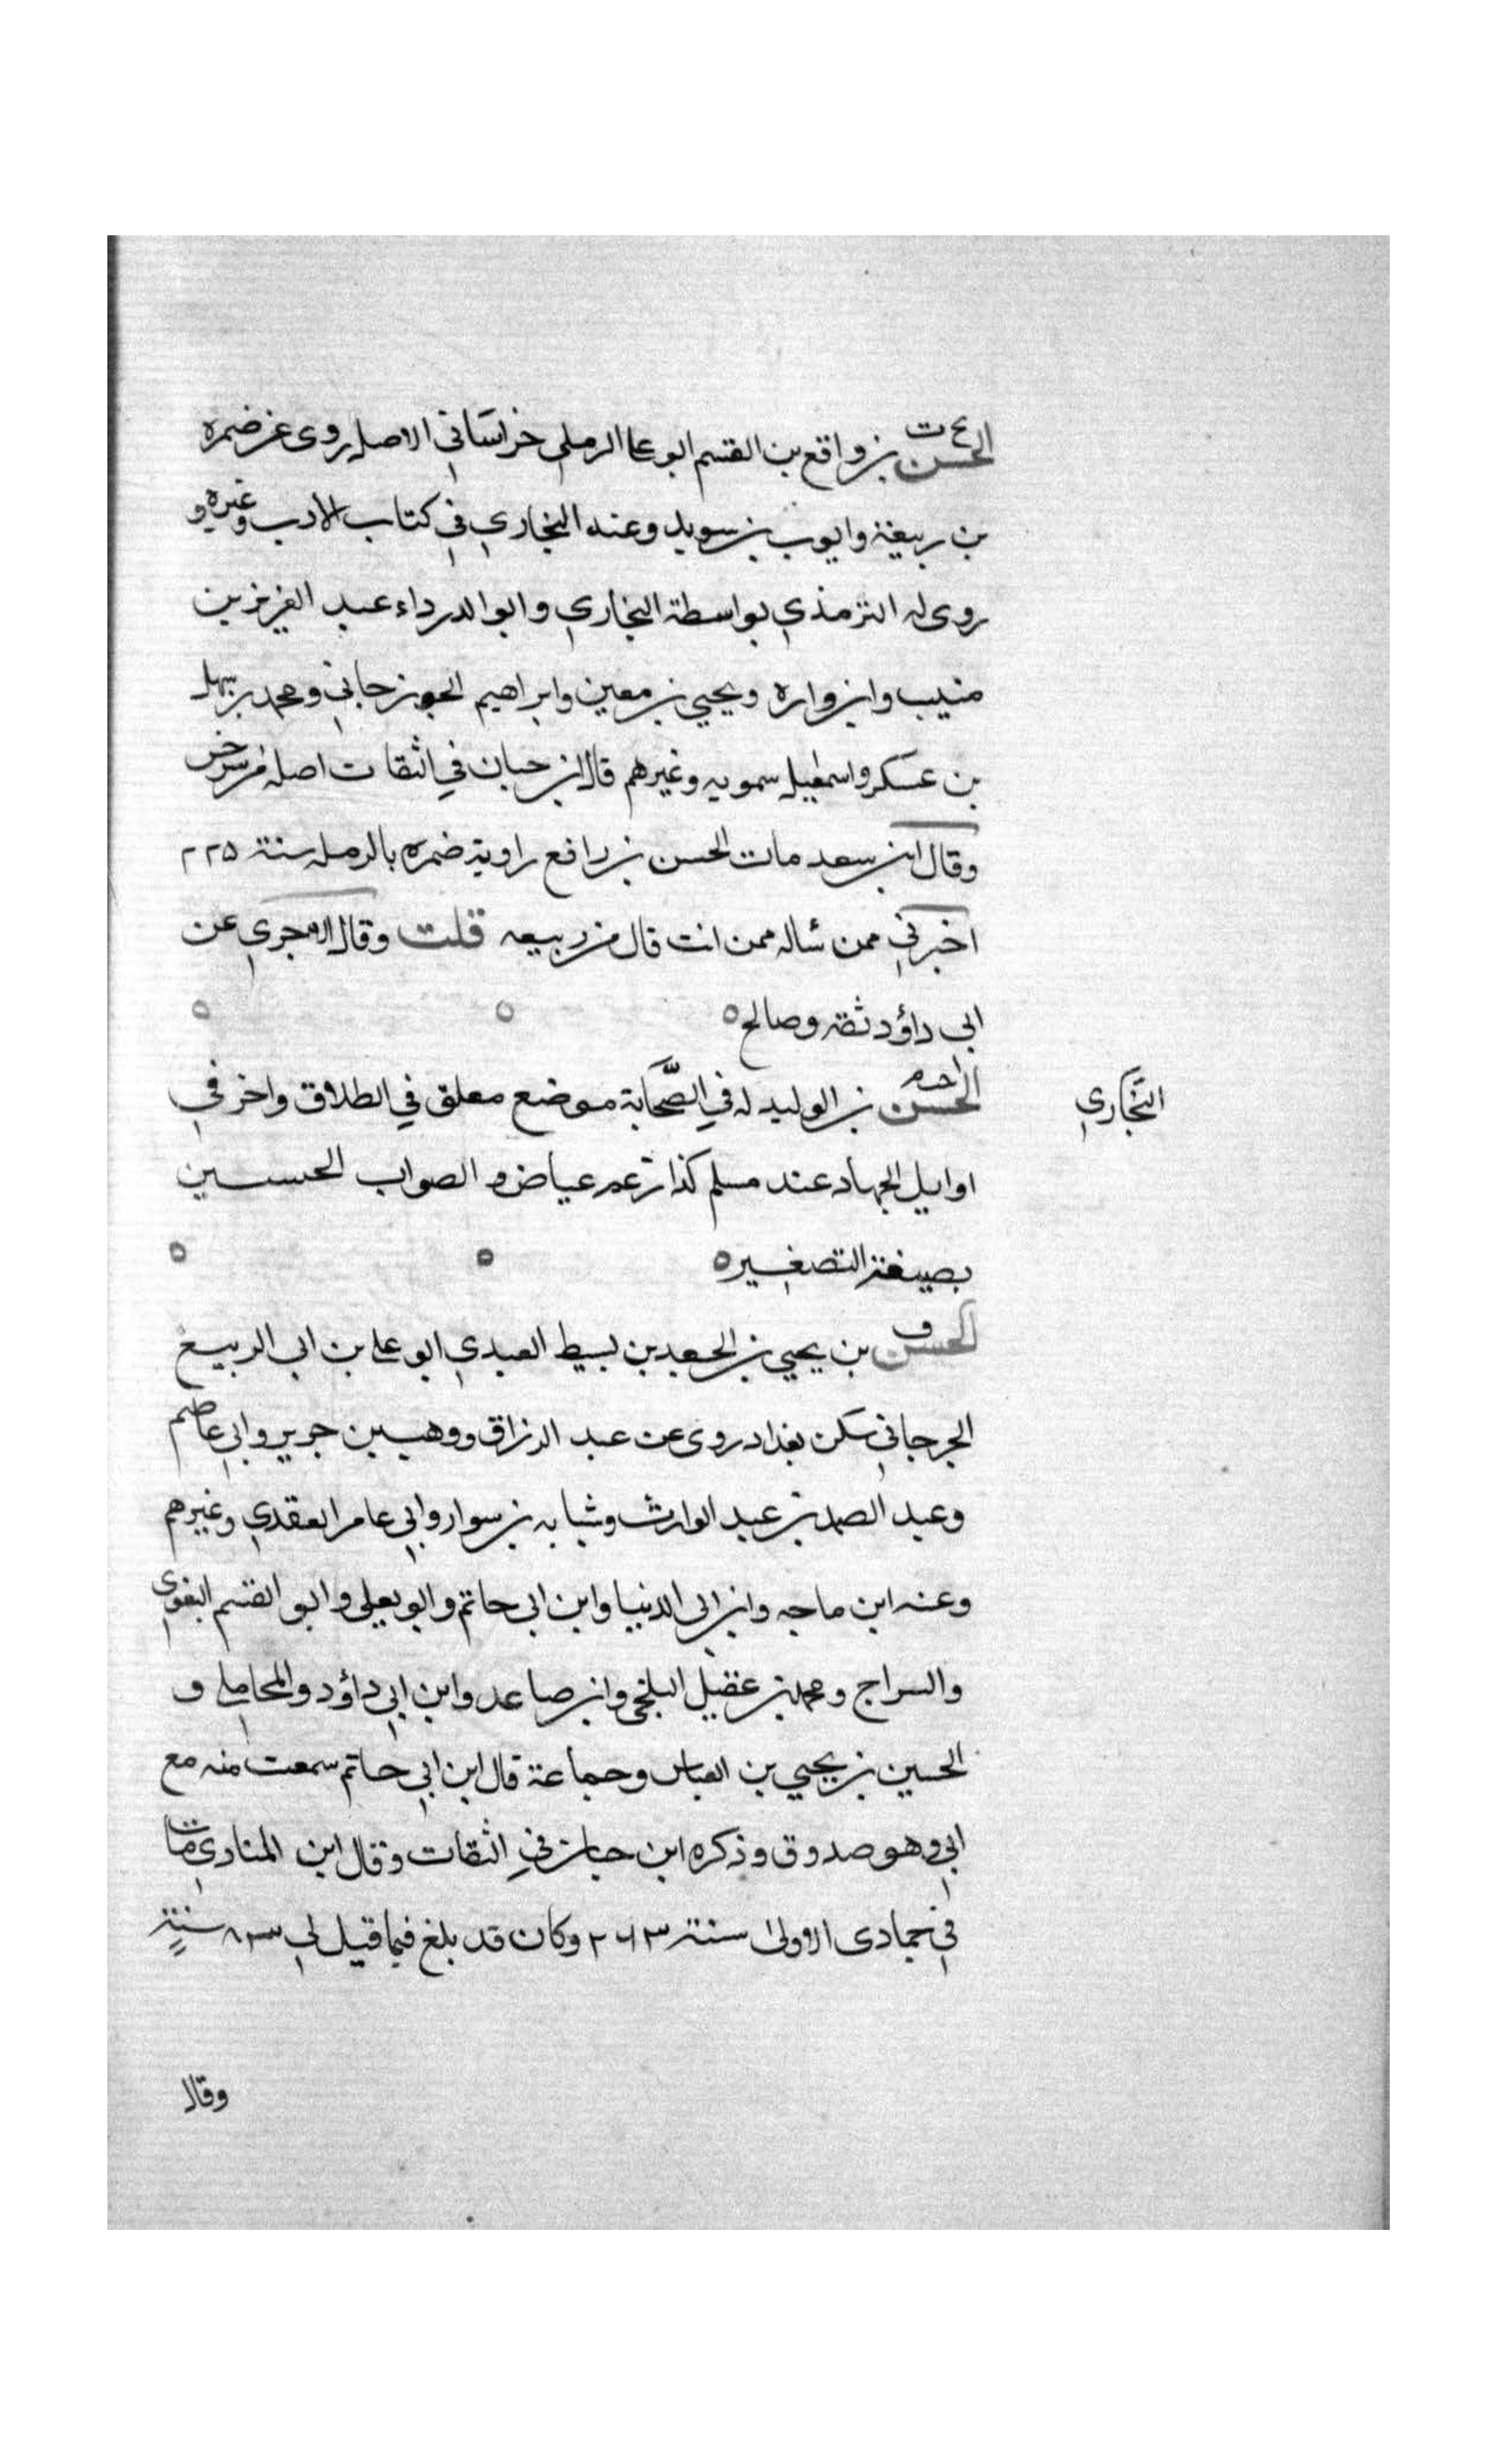 الحسن بن واقع بن القسم ابو علي الرملي خراساني الاصل روى عن ضمره
بن ربيعة وايوب بن سويد وعنه البخاري في كتاب الادب وغيره و
روى له الترمذي بواسطة البخاري وابو الدرداء عبد العزيز بن
منيب وابن واره ويحيي بن معين وابراهيم الجوزجاني ومحمد بن سهل
بن عسكر واسمعيل سمويه وغيرهم قال ابن حبان في الثقات اصله من سرخس
وقال ابن سعد مات الحسن بن رافع راوية ضمره بالرمله سنة ٢٢٥
اخبرني ممن ساله ممن انت قال من ربيعه قلت وقال الاجري عن
ابي داؤد ثقه وصالح ٥
الحسن بن الوليد له في الصحابة موضع معلق في الطلاق واخر في
البخاري
اوايل الجهاد عند مسلم كذا زعم عياض و الصواب الحسين
بصيغة التصغير ٥
الحسن بن يحيي بن الجعد بن بسيط العبدي ابو علي بن ابي الربيع
الجرجاني سكن بغداد روى عن عبد الرزاق ووهب بن جرير وابي عاصم
وعبد الصمد بن عبد الوارث وشبابه بن سوار وابي عامر العقدي وغيرهم
وعنه ابن ماجه وابن ابي الدنيا وابن ابي حاتم وابو يعلى وابو القسم البغوي
والسراج ومحمد بن عقيل البلخي وابن صاعد وابن ابي داؤد والمحاملي و
الحسين بن يحيي بن العباس وجماعة قال ابن ابي حاتم سمعت منه مع
ابي وهو صدوق وذكره ابن حبان في الثقات وقال ابن المنادي مات
في جمادى الاولى سنة ٢٦٣ وكان قد بلغ فيما قيل لي ٨٣ سنة
وقال